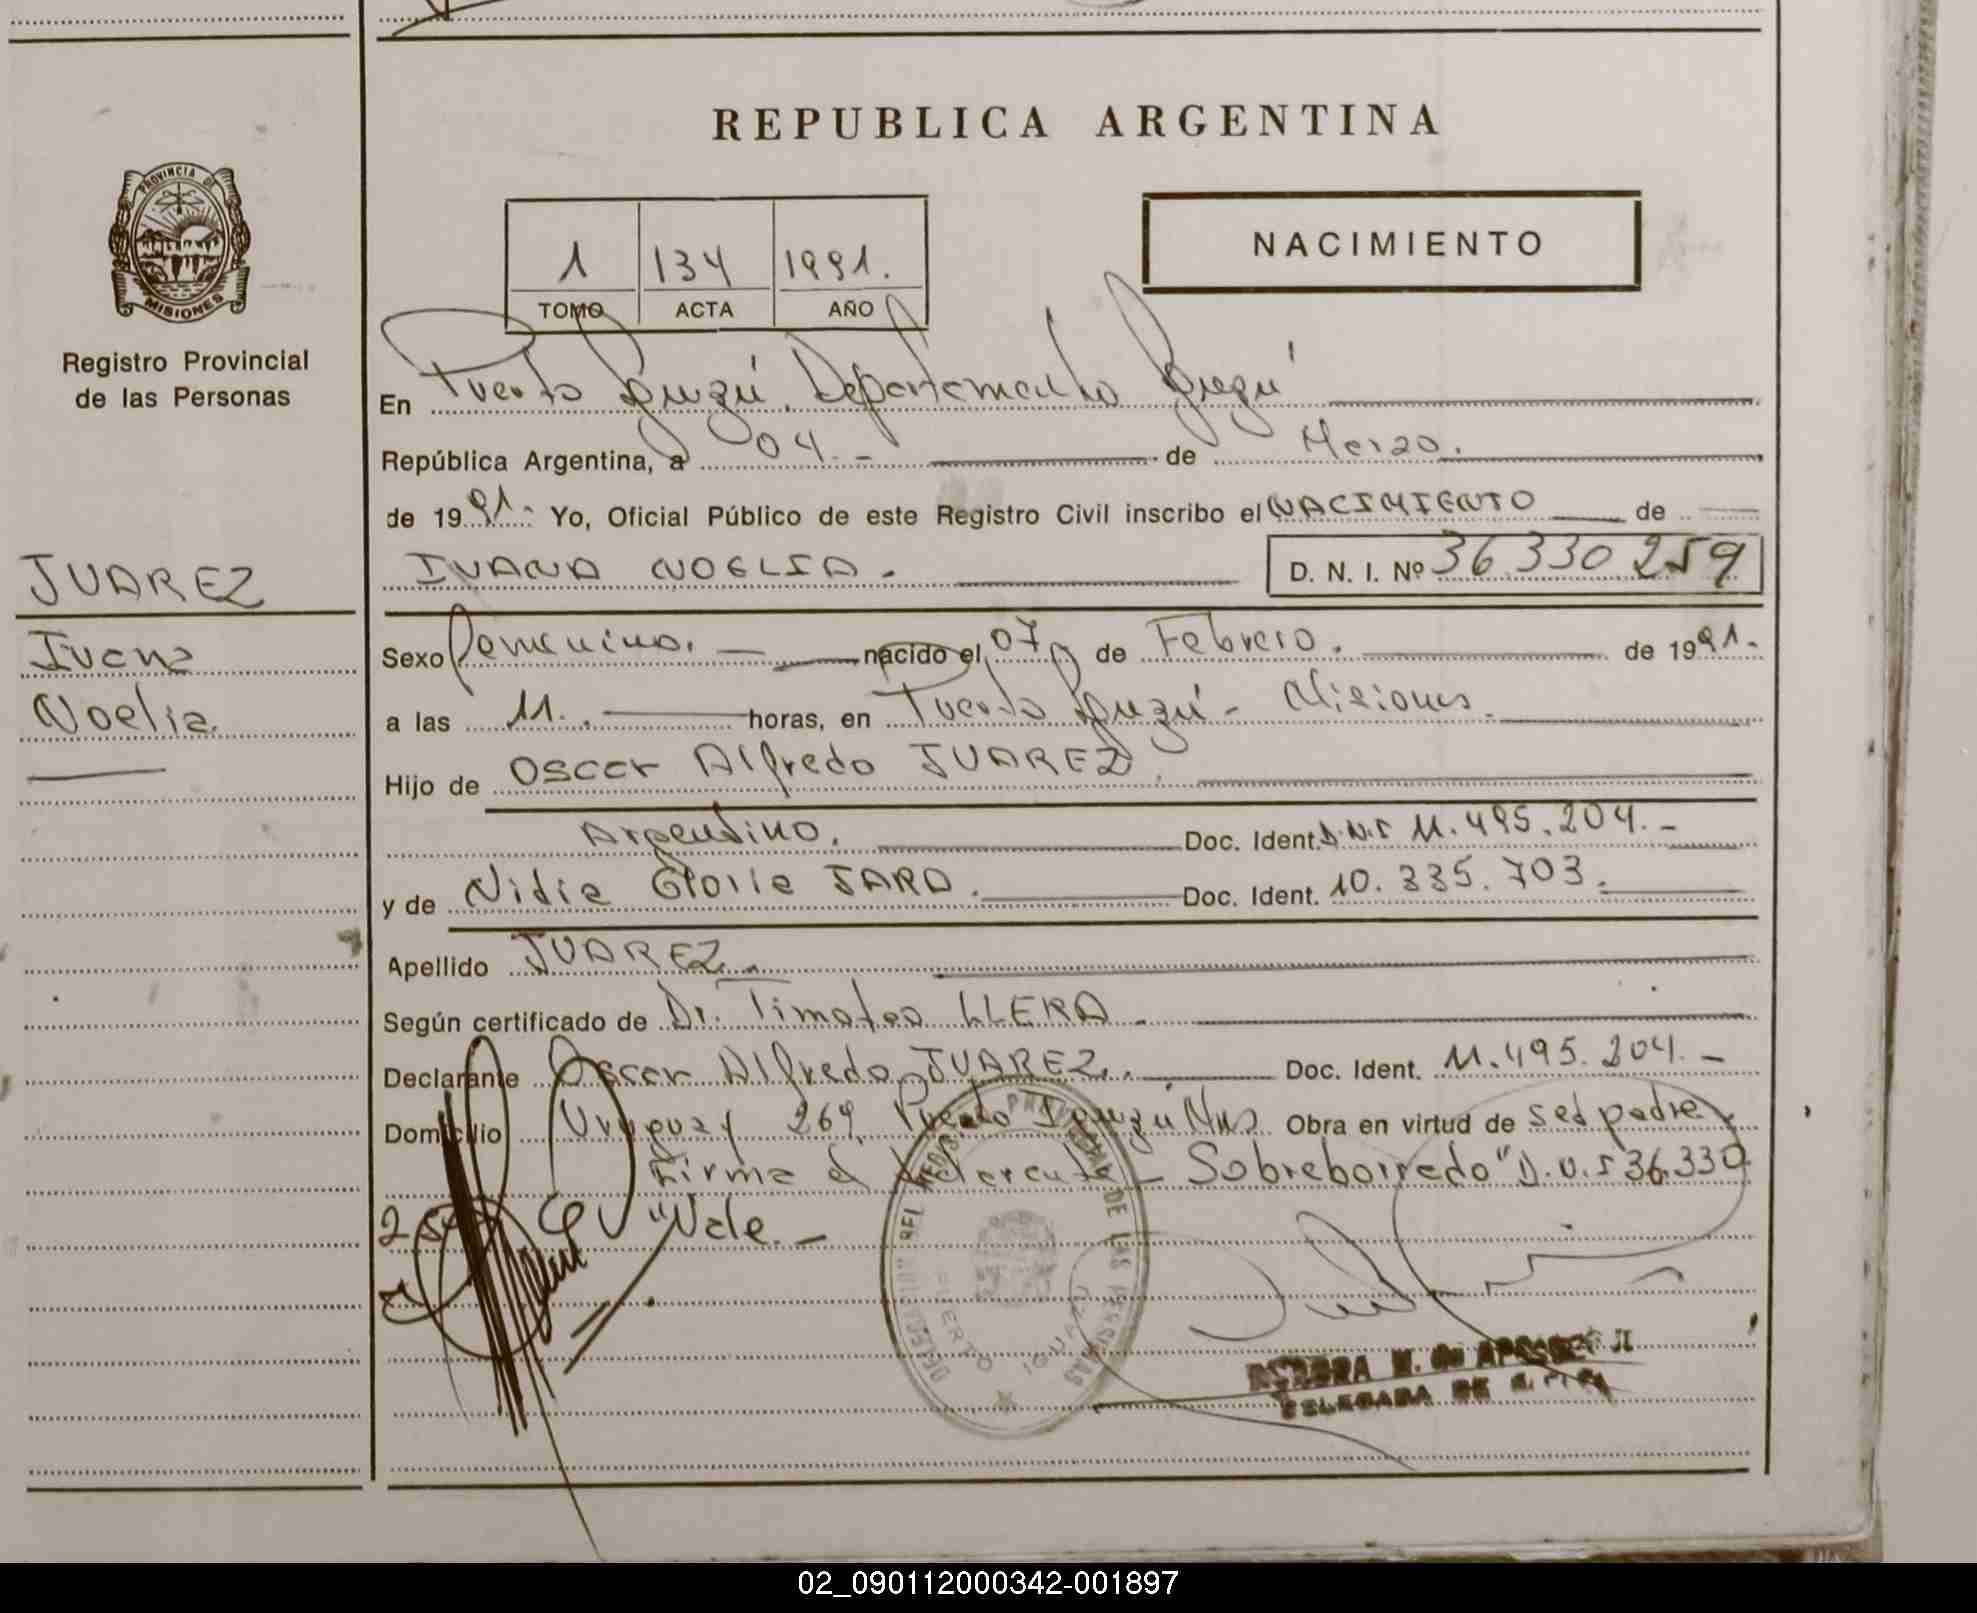 REPUBLICA ARGENTINA
PROVINCIA DE
MISIONES
Registro Provincial
de las Personas
1 134 1991.
TOMO ACTA AÑO
NACIMIENTO
En Puerto Iguazú. Departamento Iguazú
República Argentina, a 04.- de Marzo.
de 1991.- Yo, Oficial Público de este Registro Civil inscribo el NACIMIENTO de
JUAREZ
IVANA NOELIA. D. N. I. Nº 36.330.259
Ivana
Noelia.
Sexo Femenino. nacido el 07 de Febrero. de 1991.
a las 11. horas, en Puerto Iguzú - Misiones.
Hijo de Oscar Alfredo JUAREZ.
Argentino. Doc. Ident. D.N.I 11.495.204.-
y de Nidia Gloria JARA. Doc. Ident. 10.335.703.
Apellido JUAREZ.
Según certificado de Dr. Timoteo LLERA
Declarante Oscar Alfredo JUAREZ. Doc. Ident. 11.495.204.-
Domicilio Uruguay 269 Puerto Iguazú Mns Obra en virtud de ser padre
Firma el declarante - Sobreborrado "D.N.I 36.330
"Vale.-
DELEGACION DEL REGISTRO PROVINCIAL DE LAS PERSONAS
PUERTO IGUAZU
DELEGADA DE
02_090112000342-001897